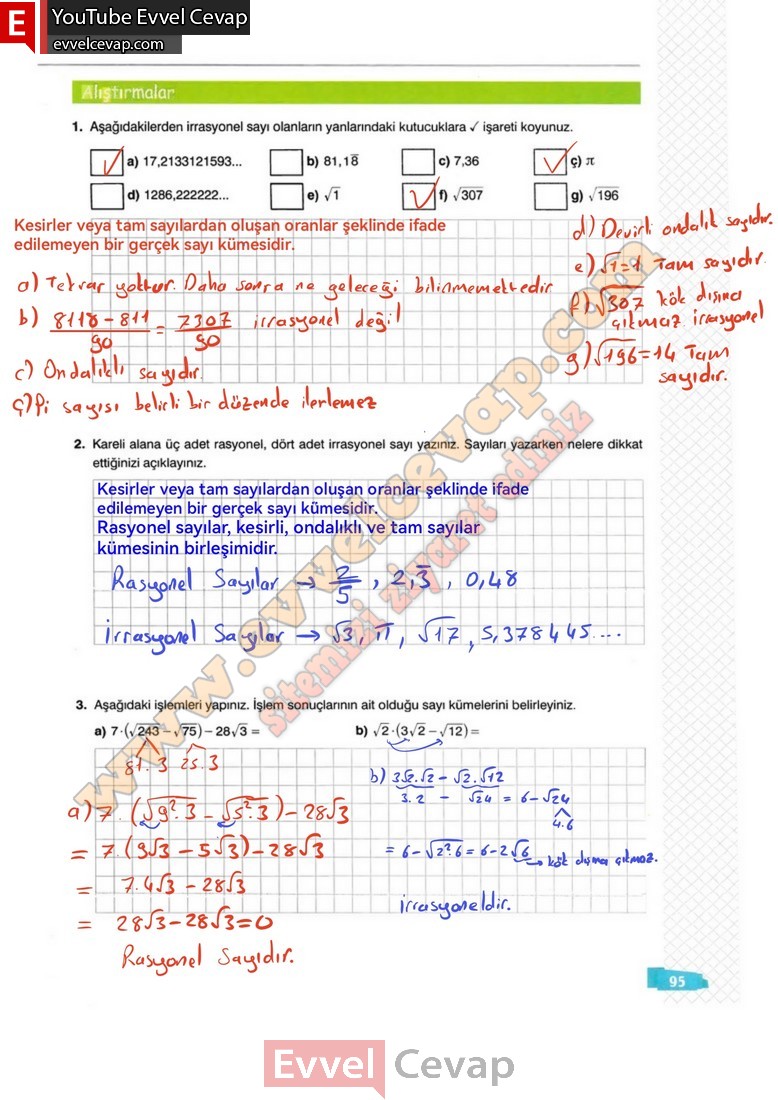 E YouTube Evvel Cevap
evvelcevap.com
Alıştırmalar
1. Aşağıdakilerden irrasyonel sayı olanların yanlarındaki kutucuklara ✓ işareti koyunuz.
✓ a) 17,2133121593... b) 81,18̅ c) 7,36 ✓ ç) π
d) 1286,222222... e) √1 ✓ f) √307 g) √196
Kesirler veya tam sayılardan oluşan oranlar şeklinde ifade
edilemeyen bir gerçek sayı kümesidir.
a) Tekrar yoktur. Daha sonra ne geleceği bilinmemektedir
b) 8118-811/90 = 7307/90 irrasyonel değil
c) Ondalıklı sayıdır.
ç) Pi sayısı belirli bir düzende ilerlemez
d) Devirli ondalık sayıdır.
e) √1=1 Tam sayıdır.
f) √307 kök dışına
çıkmaz irrasyonel
g) √196=14 Tam
sayıdır.
2. Kareli alana üç adet rasyonel, dört adet irrasyonel sayı yazınız. Sayıları yazarken nelere dikkat
ettiğinizi açıklayınız.
Kesirler veya tam sayılardan oluşan oranlar şeklinde ifade
edilemeyen bir gerçek sayı kümesidir.
Rasyonel sayılar, kesirli, ondalıklı ve tam sayılar
kümesinin birleşimidir.
Rasyonel Sayılar → 2/5, 2,3̅, 0,48
İrrasyonel Sayılar → √3, π, √17, 5,378445....
3. Aşağıdaki işlemleri yapınız. İşlem sonuçlarının ait olduğu sayı kümelerini belirleyiniz.
a) 7·(√243 – √75) – 28√3 = b) √2·(3√2 – √12) =
81.3 25.3
a) 7.(√9².3 - √5².3) - 28√3
= 7.(9√3 - 5√3) - 28√3
= 7.4√3 - 28√3
= 28√3 - 28√3 = 0
Rasyonel Sayıdır.
b) 3√2.√2 - √2.√12
3.2 - √24 = 6-√24
4.6
= 6-√2².6 = 6-2√6 → kök dışına çıkmaz.
irrasyoneldir.
www.evvelcevap.com
sitemizi ziyaret ediniz
95
Evvel Cevap